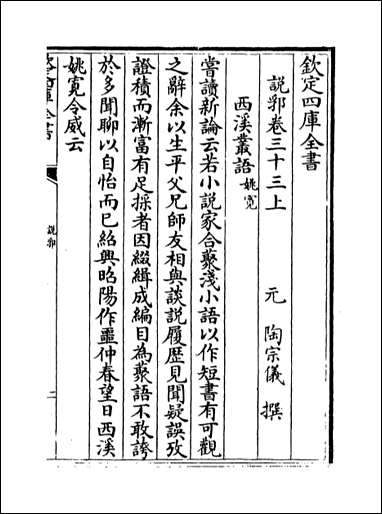 欽定四庫全書
說郛卷三十三上
元 陶宗儀 撰
西溪叢語 姚寬
嘗讀新論云若小說家合叢淺小語以作短書有可觀
之辭余以生平父兄師友相與談說履歷見聞疑誤攷
證積而漸富有足採者因綴緝成編目為叢語不敢誇
於多聞聊以自怡而已紹興昭陽作噩仲春望日西溪
姚寛令威云
欽定四庫全書
說郛